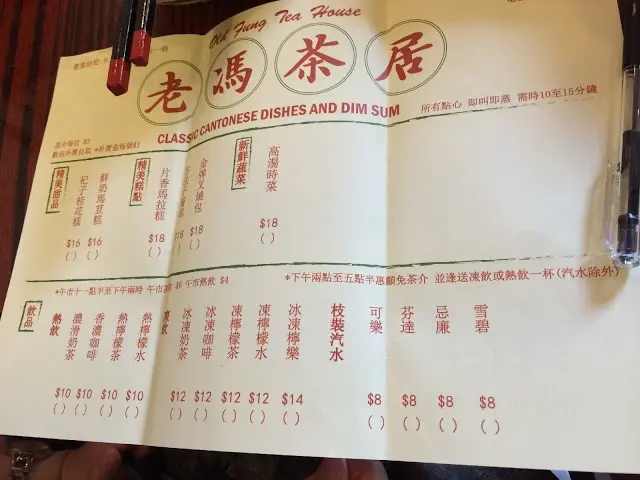 Old Fung Tea House
老馮茶居
CLASSIC CANTONESE DISHES AND DIM SUM
所有點心 即叫即蒸 需時10至15分鐘
茶介每位 $3
歡迎外賣自取 *外賣盒每個$1
精美甜品
杞子桂花糕
$16
( )
鮮奶馬荳糕
$16
( )
精美糕點
片香馬拉糕
$18
( )
$18
( )
金牌叉燒包
$18
( )
新鮮蔬菜
高湯時菜
$18
( )
*午市十一點半至下午兩時 午市
午市熱飲 $4
*下午兩點至五點半惠顧免茶介 並逢送凍飲或熱飲一杯(汽水除外)
飲品
熱飲
濃滑奶茶
$10
( )
香濃咖啡
$10
( )
熱檸檬茶
$10
( )
熱檸檬水
$10
( )
凍飲
冰凍奶茶
$12
( )
冰凍咖啡
$12
( )
凍檸檬茶
$12
( )
凍檸檬水
$12
( )
冰凍檸樂
$14
( )
枝裝汽水
可樂
$8
( )
芬達
$8
( )
忌廉
$8
( )
雪碧
$8
( )